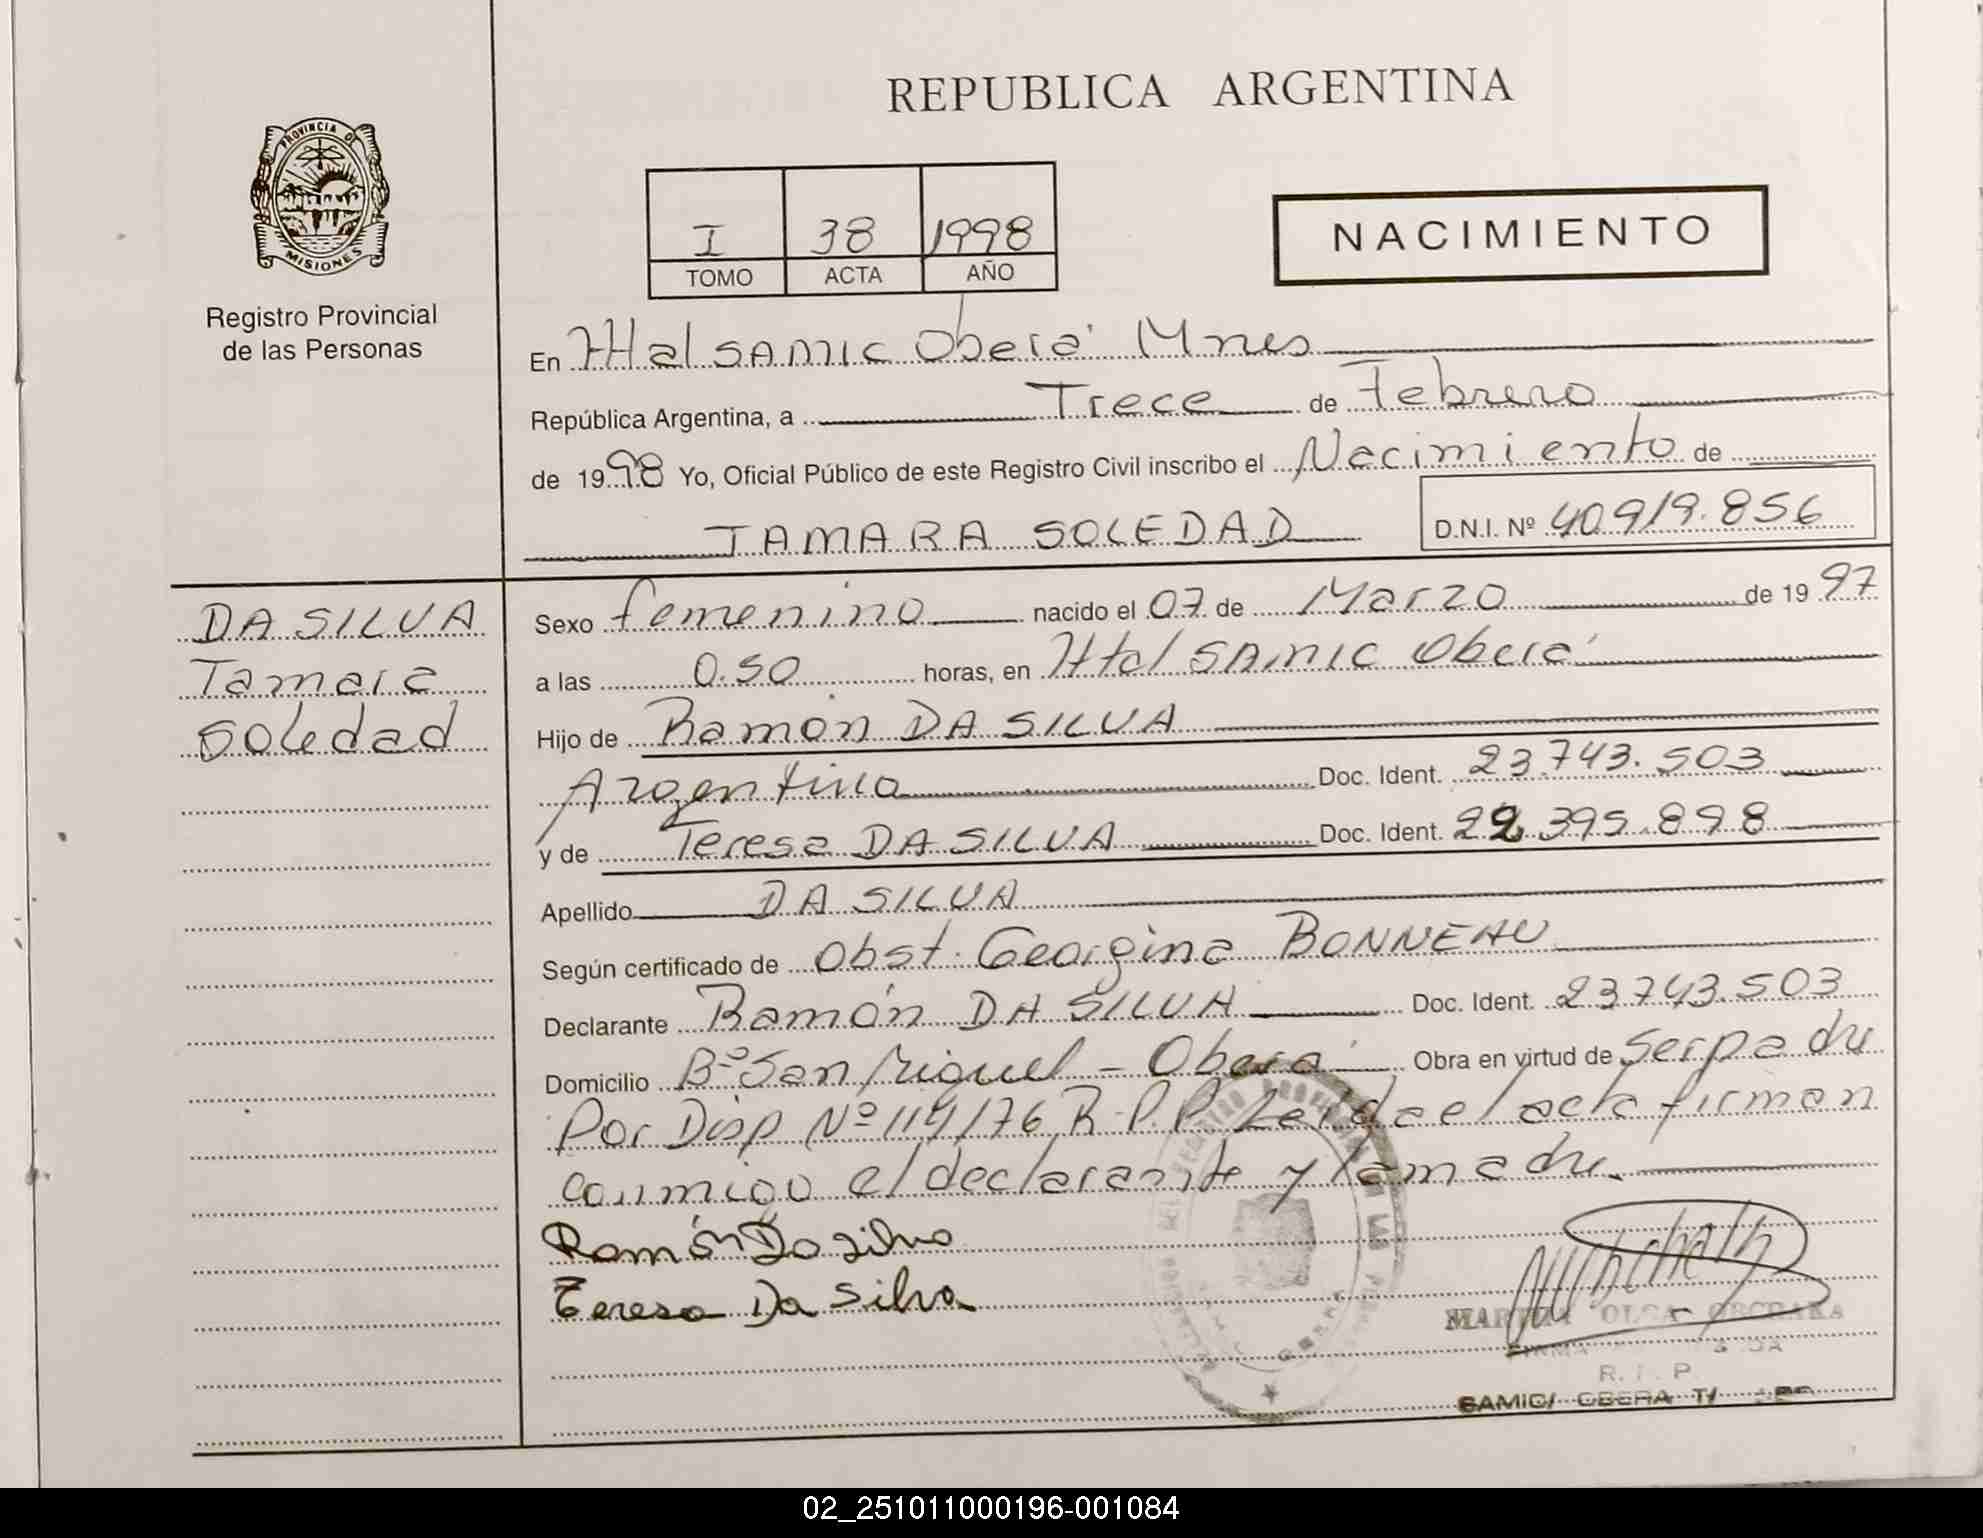 REPUBLICA ARGENTINA
PROVINCIA DE
MISIONES
Registro Provincial
de las Personas
I 38 1998
TOMO ACTA AÑO
NACIMIENTO
En Htal SAMIC Oberá Mnes
República Argentina, a Trece de Febrero
de 1998 Yo, Oficial Público de este Registro Civil inscribo el Nacimiento de
TAMARA SOLEDAD D.N.I. Nº 40.919.856
DA SILVA
Tamara
Soledad
Sexo femenino nacido el 07 de Marzo de 1997
a las 0.50 horas, en Htal SAMIC Oberá
Hijo de Ramón DA SILVA
Argentina Doc. Ident. 23.743.503
y de Teresa DA SILVA Doc. Ident. 22.395.898
Apellido DA SILVA
Según certificado de Obst. Georgina BONNEAU
Declarante Ramón DA SILVA Doc. Ident. 23743.503
Domicilio Bº San Miguel - Oberá Obra en virtud de ser padre
Por Disp Nº 114/76 R.P.P. Leída el acta firman
conmigo el declarante y la madre.
Ramón Da silva
Teresa Da Silva
OLGA
R. P.
SAMIC/ OBERA
02_251011000196-001084